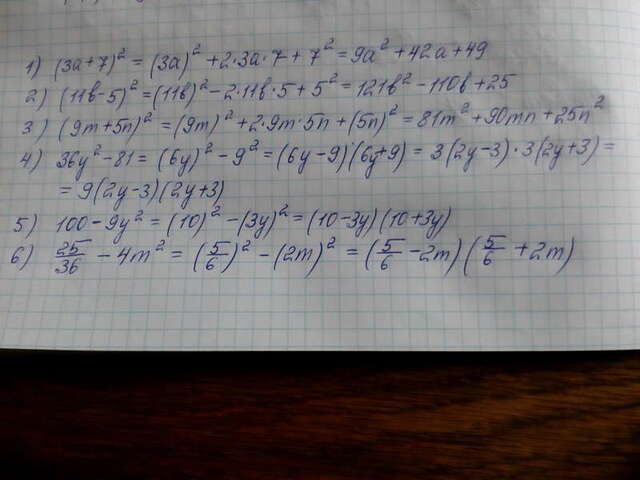 1) (3a+7)² = (3a)² + 2·3a·7 + 7² = 9a² + 42a + 49
2) (11в-5)² = (11в)² - 2·11в·5 + 5² = 121в² - 110в + 25
3) (9m+5n)² = (9m)² + 2·9m·5n + (5n)² = 81m² + 90mn + 25n²
4) 36y² - 81 = (6y)² - 9² = (6y-9)·(6y+9) = 3(2y-3)·3(2y+3) =
= 9(2y-3)(2y+3)
5) 100 - 9y² = (10)² - (3y)² = (10-3y)(10+3y)
6) 25/36 - 4m² = (5/6)² - (2m)² = (5/6 - 2m)(5/6 + 2m)